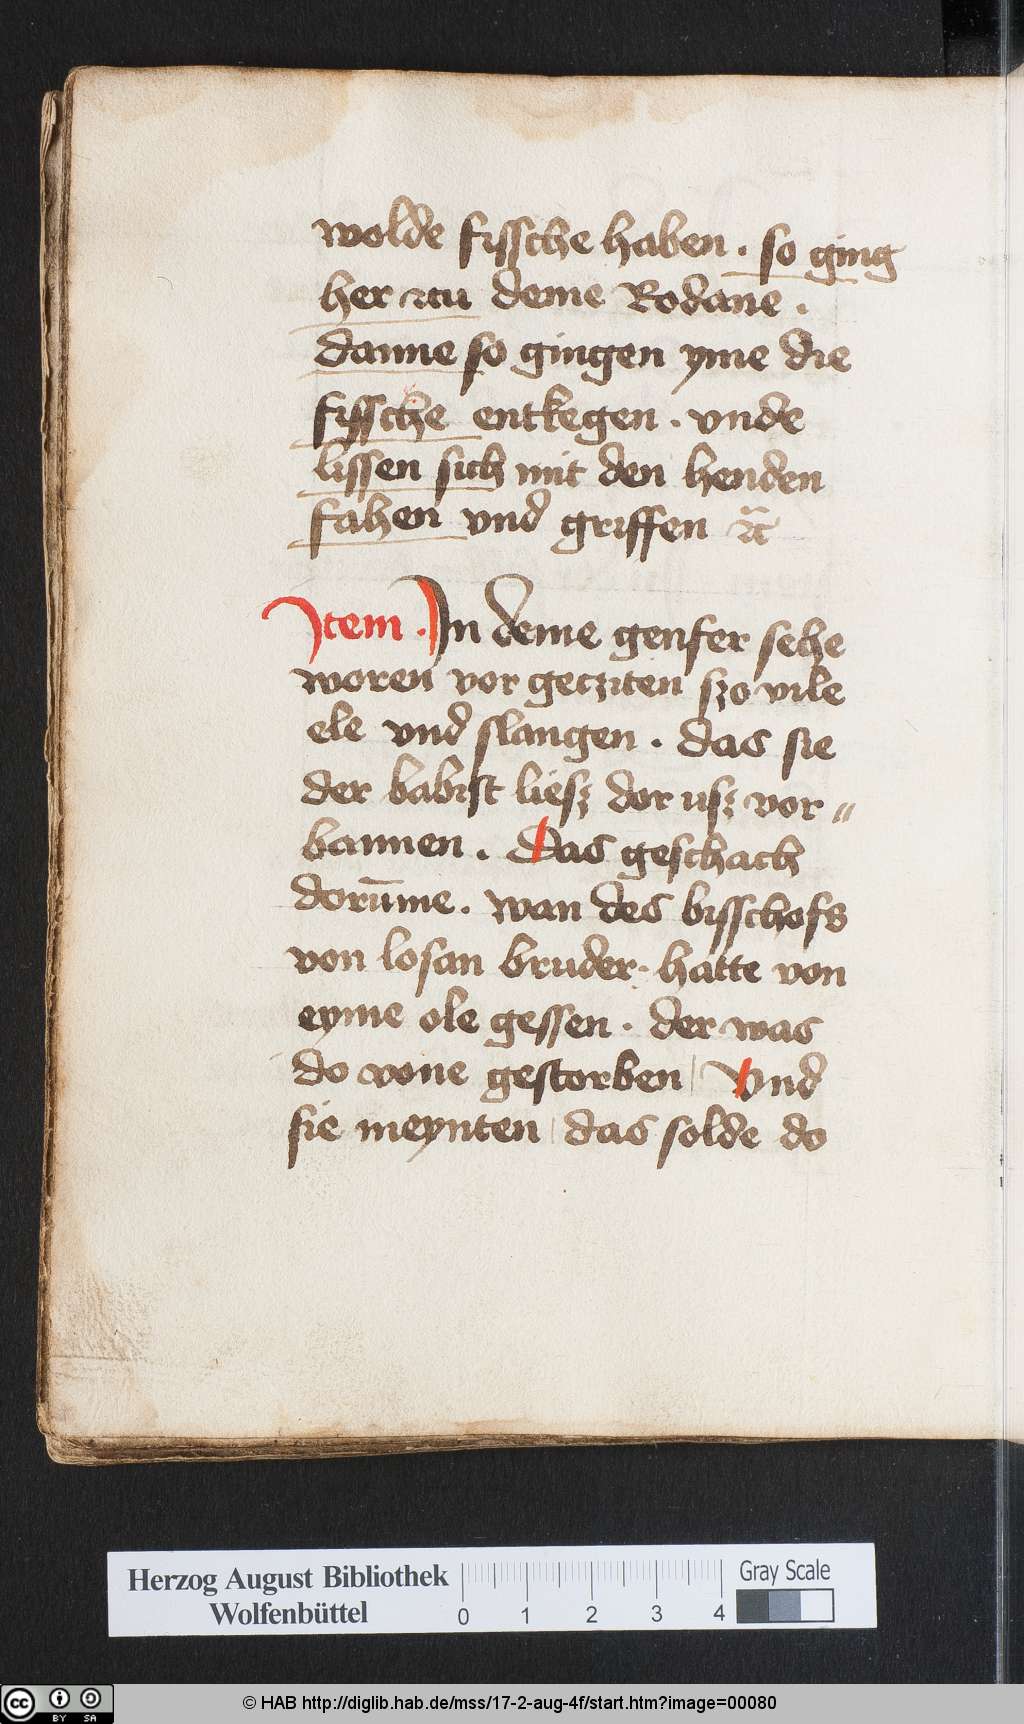 wolde fissche haben . so ging
her czu deme Rodane .
danne so gingen yme die
fissche entkegen . vnde
lissen sich mit den henden
fahen vnd griffen
Item . In deme genfer sehe
woren vor gecziten szo vile
ele vnd slangen . das sie
der babist liesz dor usz vor〃
bannen . Das geschach
dorūme . wan des bisschofs
von losan bruder . hatte von
eyme ole gessen . der was
do vone gestorben | Vnd
sie meynten | das solde do
Herzog August Bibliothek
Wolfenbüttel
0 1 2 3 4
Gray Scale
cc BY SA
© HAB http://diglib.hab.de/mss/17-2-aug-4f/start.htm?image=00080